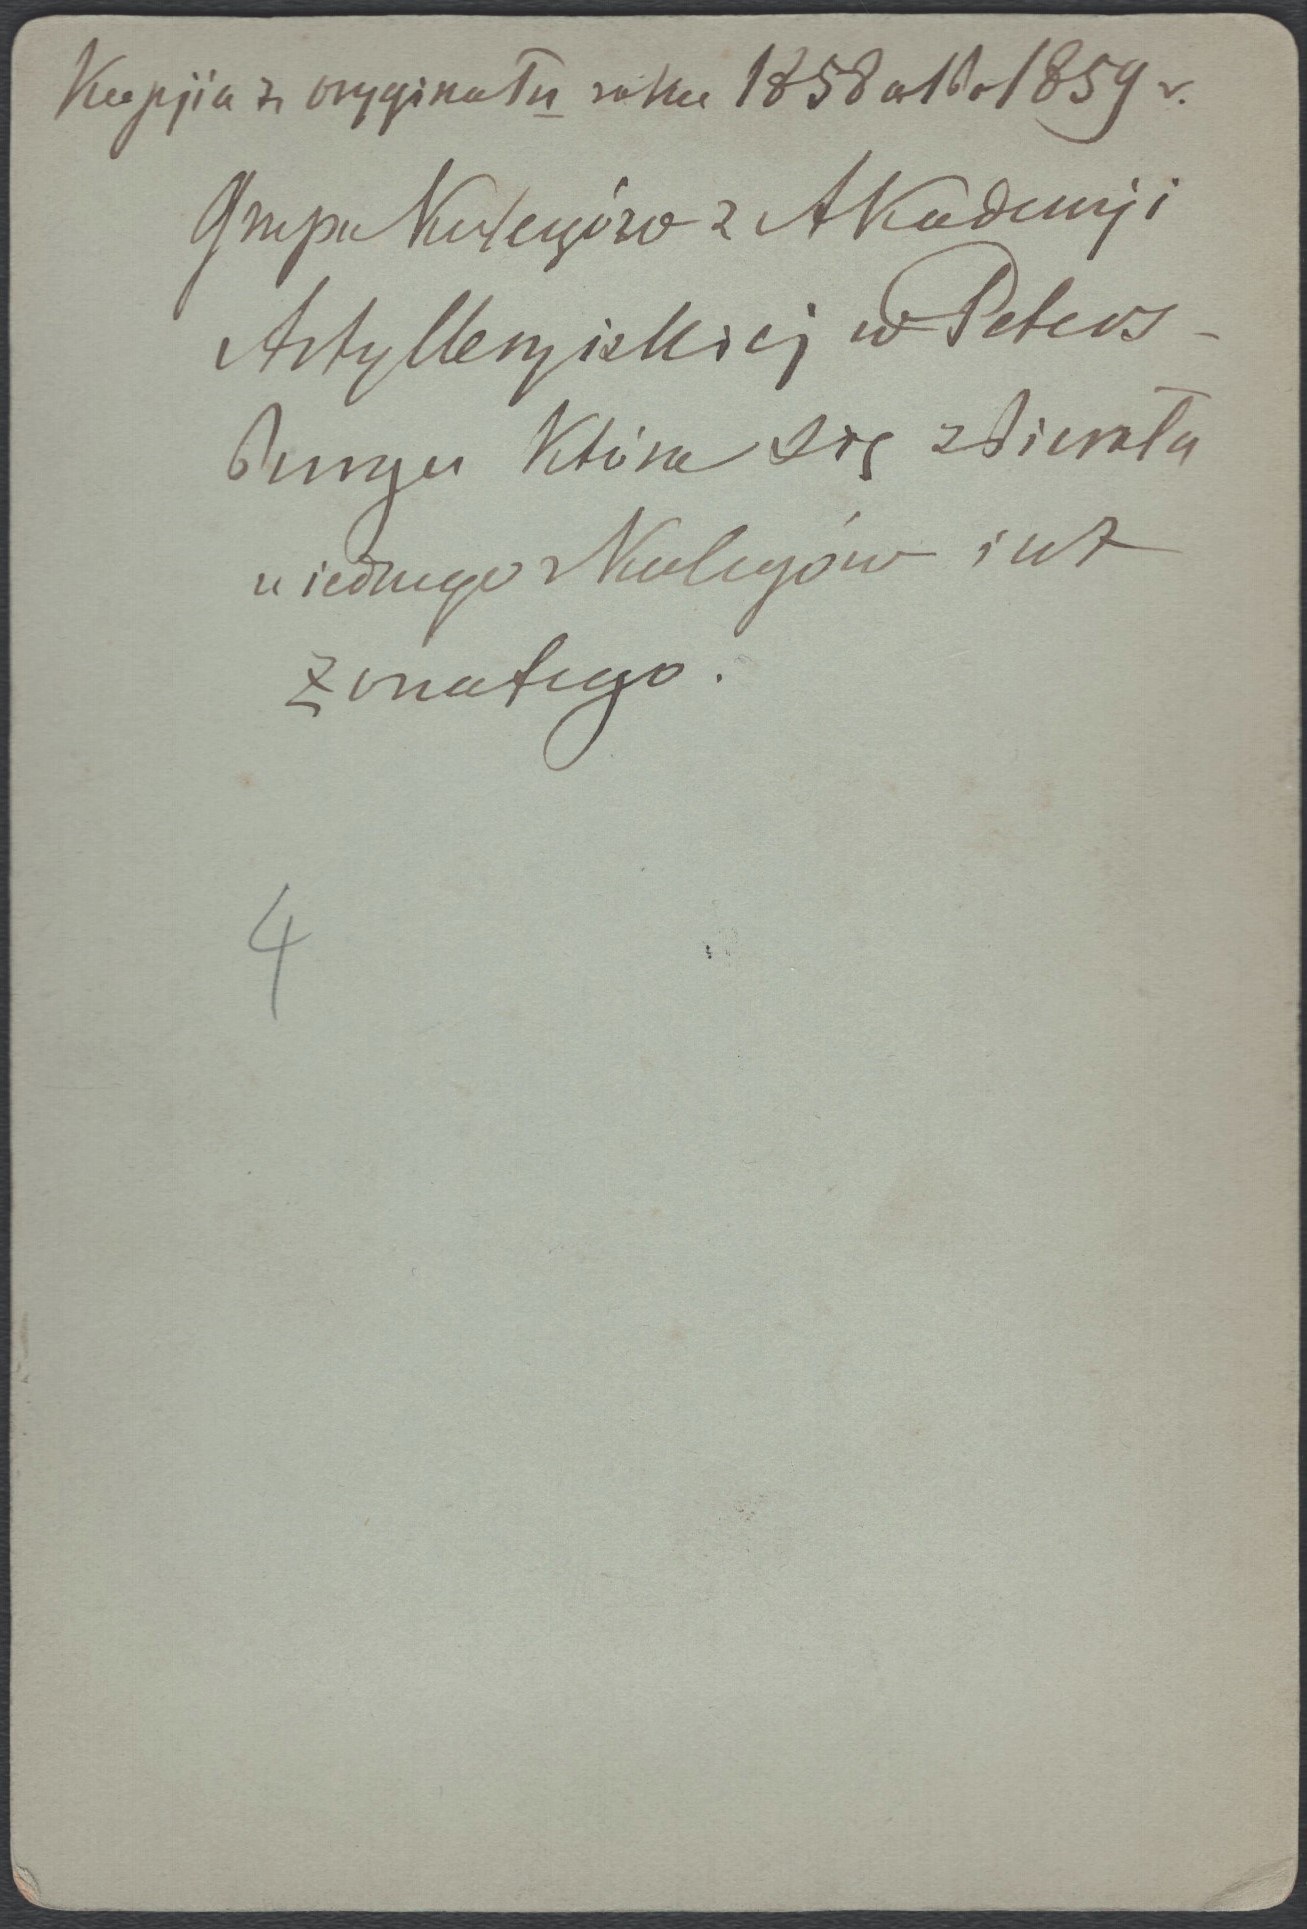 Kopjia z oryginału roku 1858 albo 1859 r.
Grupa Kolegów z Akademji
Artylleryiskiej w Peters-
burgu która się zbierała
u iednego z Kolegów iuż
żonatego.
4